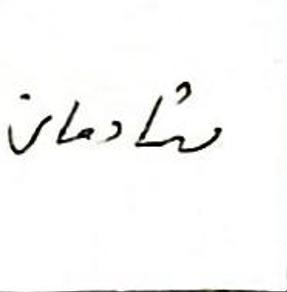 شادمان